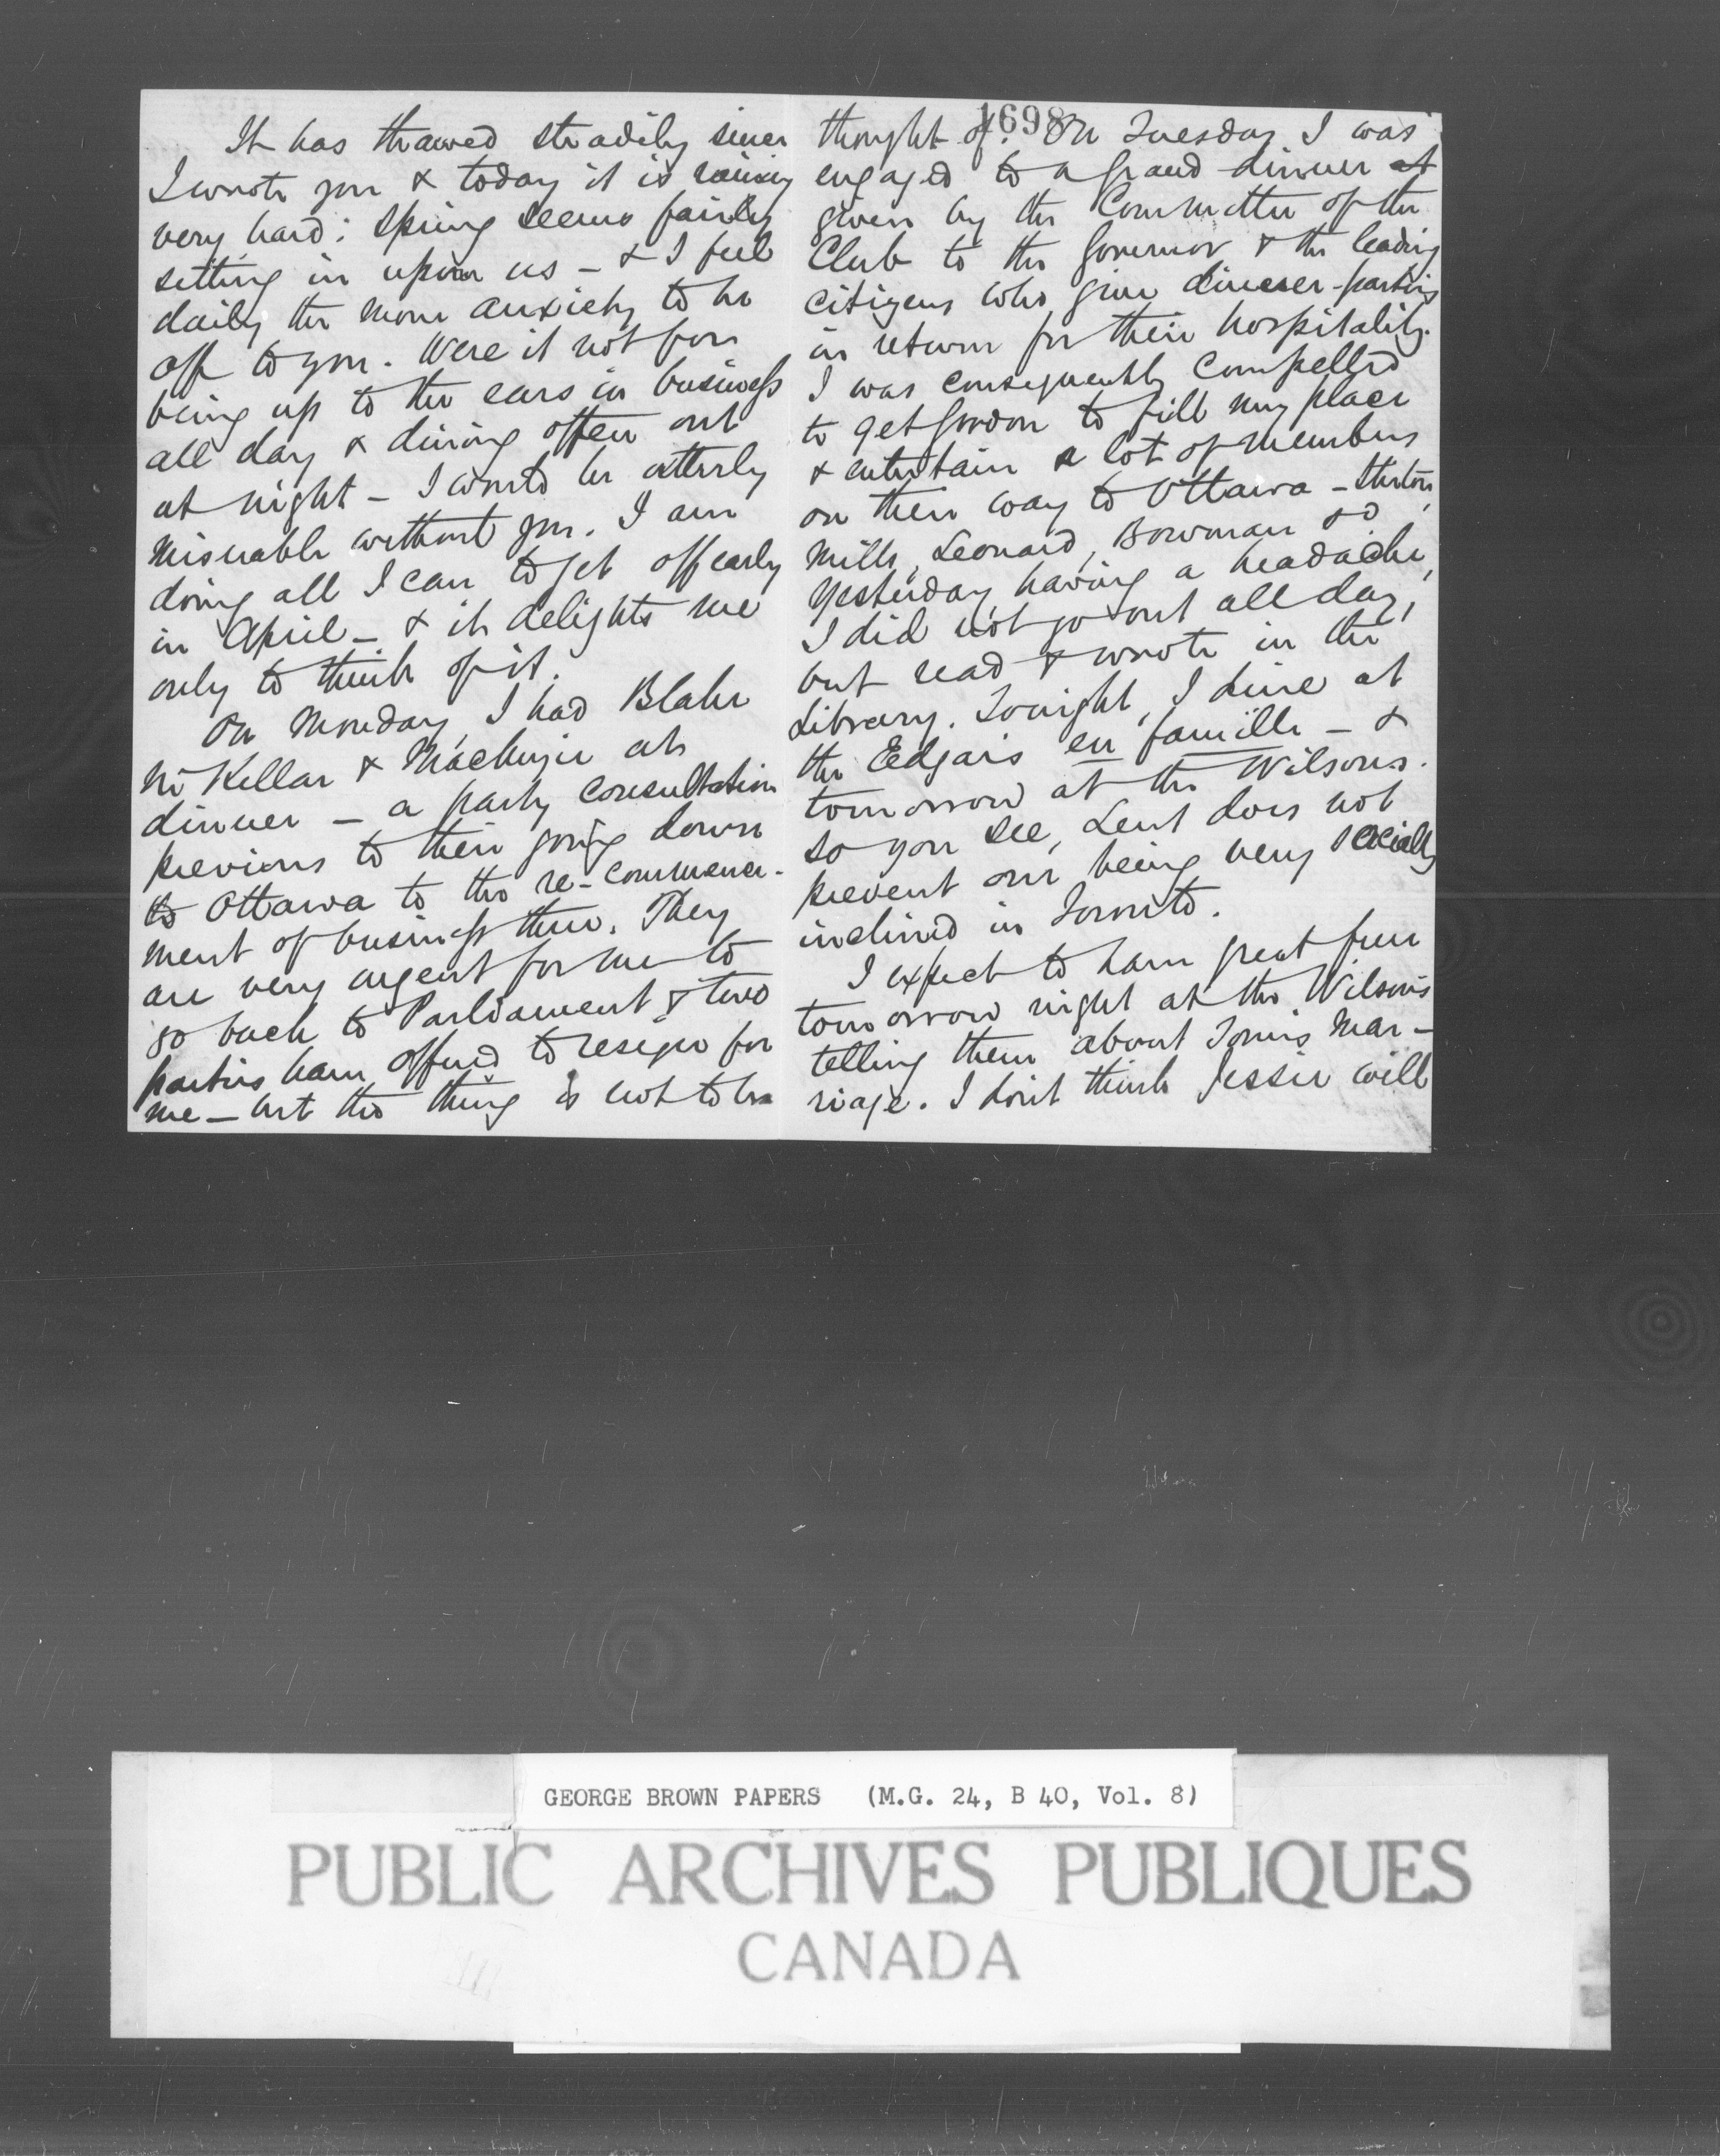 It has thawed steadily since
I wrote you & today it is raining
very hard: Spring seems fairly
setting in upon us - & I feel
daily the more anxiety to be
off to you. Were it not for
being up to the ears in business
all day & dining often out
at night - I would be utterly
miserable without you. I am
doing all I can to get off early
in April - & it delights me
only to think of it.
On Monday, I had Blake
McKellar & Mackenzie at
dinner - a party consultation
previous to their going down
to Ottawa to the re-commence-
ment of business there. They
are very urgent for me to
go back to Parliament & two
parties have offered to resign for
me - but the thing is not to be
1698
thought of. On Tuesday I was
engaged to a grand dinner at
given by the Committee of the
Club to the Governor & the leading
citizens who give dinner-parties
in return for their hospitality.
I was consequently compelled
to get Gordon to fill my place
& entertain a lot of members
on their way to Ottawa -
Mills, Leonard, Bowman
Yesterday, having a headache,
I did not go out all day,
but read & wrote in the
Library. Tonight, I dine at
the Edgars en famille - &
tomorrow at the Wilsons.
So you see, Lent does not
prevent our being very socially
inclined in Toronto.
I expect to have great fun
tomorrow night at the Wilsons
telling them about Tom's mar-
riage. I don't think Jessie will
GEORGE BROWN PAPERS (M.G. 24, B 40, Vol. 8)
PUBLIC ARCHIVES PUBLIQUES
CANADA